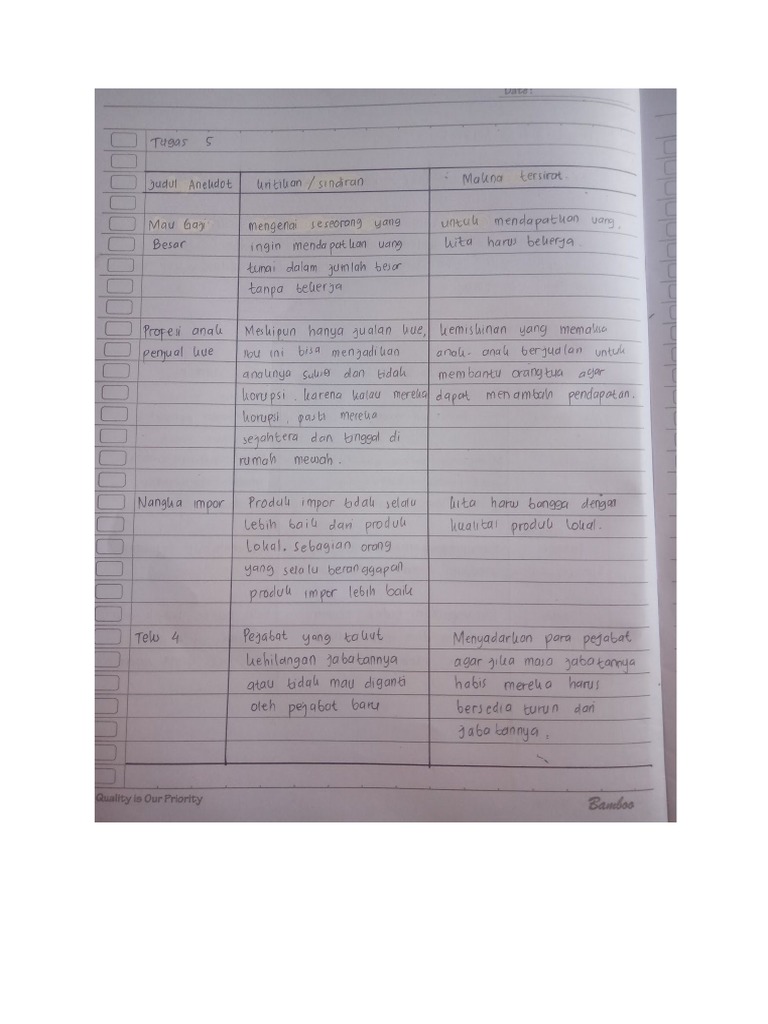 Date:
Tugas 5
Judul Anekdot kritikan / sindiran Makna tersirat.
Mau Gaji mengenai seseorang yang untuk mendapatkan uang,
Besar ingin mendapatkan uang kita harus bekerja.
tunai dalam jumlah besar
tanpa bekerja
Profesi anak Meskipun hanya jualan kue, kemiskinan yang memaksa
penjual kue Ibu ini bisa menjadikan anak-anak berjualan untuk
anaknya sukses dan tidak membantu orangtua agar
korupsi. karena kalau mereka dapat menambah pendapatan.
korupsi, pasti mereka
sejahtera dan tinggal di
rumah mewah.
Nangka impor Produk impor tidak selalu kita harus bangga dengan
lebih baik dari produk kualitas produk lokal.
Lokal. sebagian orang
yang selalu beranggapan
produk impor lebih baik
Teks 4 Pejabat yang takut Menyadarkan para pejabat
kehilangan jabatannya agar jika masa jabatannya
atau tidak mau diganti habis mereka harus
oleh pejabat baru bersedia turun dari
jabatannya.
Quality is Our Priority Bamboo